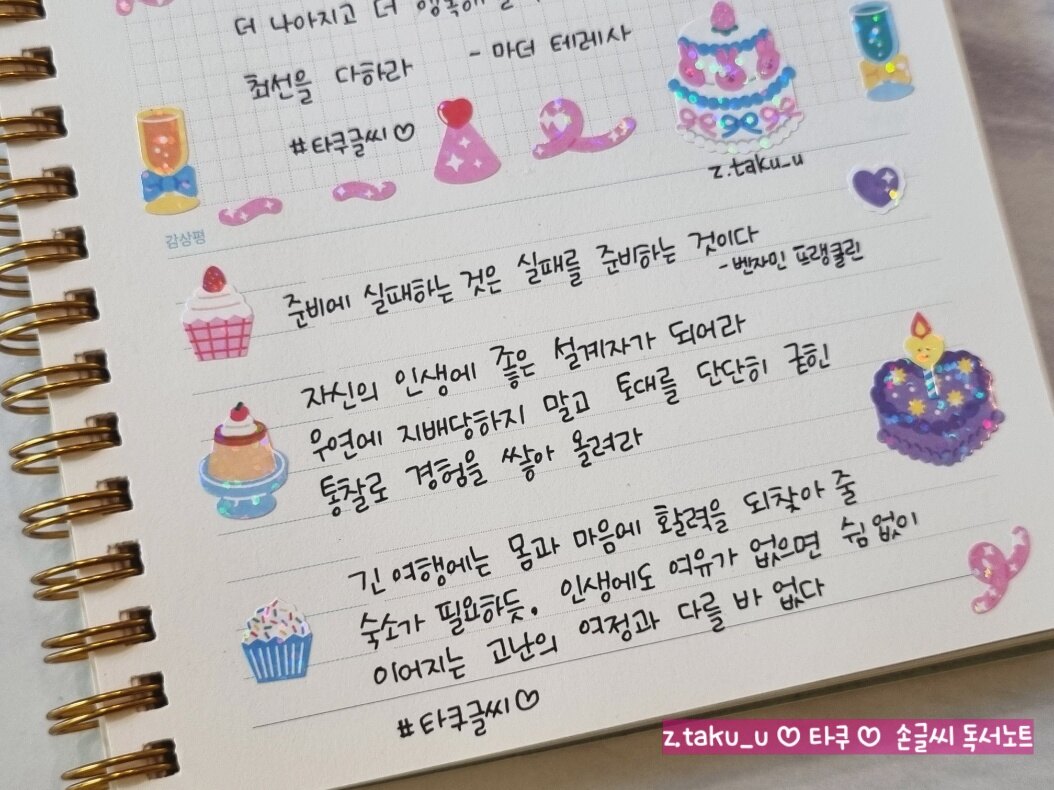 더 나아지고 더
최선을 다하라 - 마더 테레사
#타쿠글씨♡
z.taku_u
감상평
준비에 실패하는 것은 실패를 준비하는 것이다
- 벤자민 프랭클린
자신의 인생에 좋은 설계자가 되어라
우연에 지배당하지 말고 토대를 단단히 굳힌
통찰로 경험을 쌓아 올려라
긴 여행에는 몸과 마음에 활력을 되찾아 줄
숙소가 필요하듯, 인생에도 여유가 없으면 쉼없이
이어지는 고난의 여정과 다를 바 없다
#타쿠글씨♡
z.taku_u ♡ 타쿠 ♡ 손글씨 독서노트